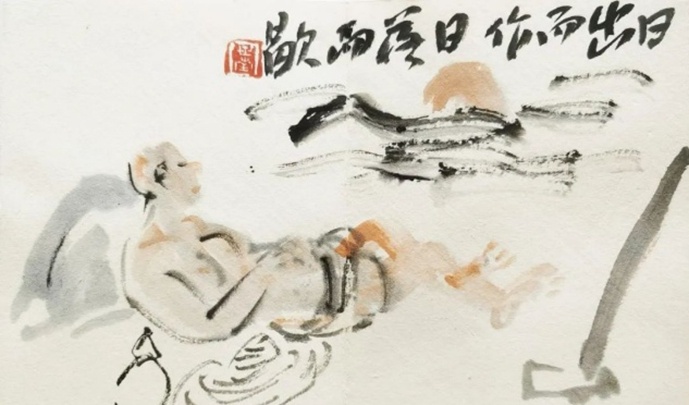 日出而作日落而歇